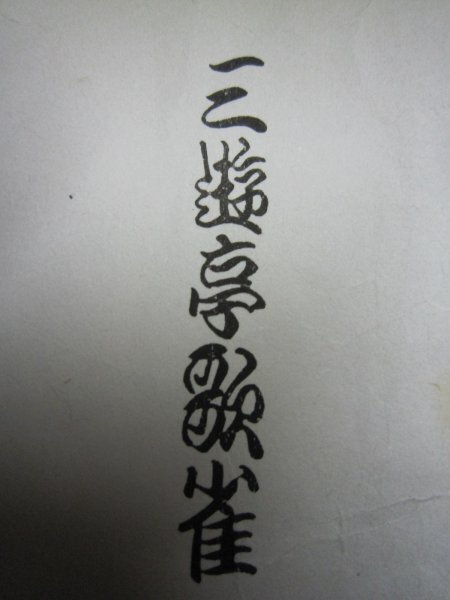 三遊亭歌雀